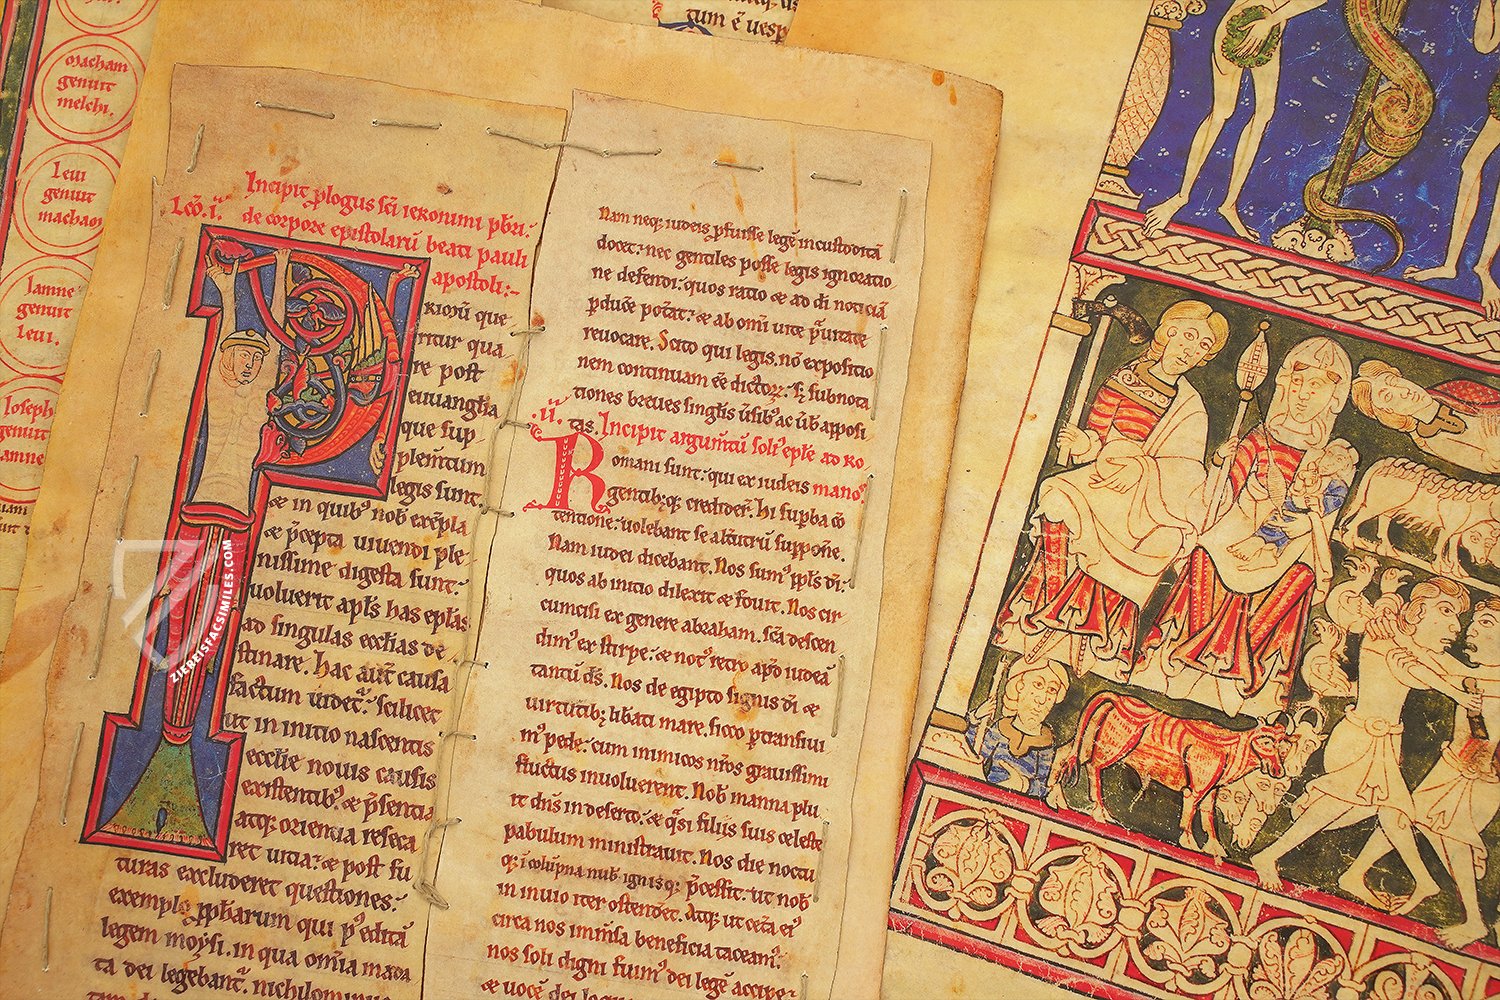 tum ē uesp
Macham
genuit
melchi.
Leui
genuit
machao
Iamne
genuit
Leui.
Ioseph
genuit
amne
Incipit plogus sci ieronimi pbri:
de corpore epistolarū beati pauli
apostoli:-
que
ritur qua
re post
euuanglia
que sup
plemtum
legis sunt.
& in quib' nob exēpla
& pcepta uiuendi ple
nissime digesta sunt:
uoluerit apls has eplas
ad singulas ecclias de
stinare. hac aut causa
factum uidet: scilicet
ut in initio nascentis
ecclie nouis causis
existentib' & psentia
atq; orientia reseca
ret uitia: & post fu
turas excluderet questiones:
exemplo ppharum qui p' editā
legem moysi. in qua omia mada
ta dei legebant. nichilominus
Nam neq; iudeis pfuisse legē incustoditā
docet: nec gentiles posse legis ignoratio
ne defendi: quos ratio & ad di noticiā
pduce potat: & ab omi uite prauitate
reuocare. Scito qui legis. nō expositio
nem continuam eē
tiones breues singlis usib' ac ub apposi
.ii. tas. Incipit argumtū solē eplē ad Ro
Romani sunt: qui ex iudeis manos
gentib; q; crediderē. hi supba cō
tentione: uolebant se altutrū supponē.
Nam iudei dicebant. Nos sum' ppls di:
quos ab initio dilexit & fouit. Nos cir
cumcisi ex genere abraham. scā descen
dim' ex stirpe: & not' retro apd iudeā
tantū ds. Nos de egipto signis di &
uirtutib; libati mare. sicco ptransiui
m' pede: cum inimicos nros grauissimi
fluctus inuoluerent. Nob manna plu
it dns in deserto: & qsi filiis suis celeste
pabulum ministrauit. Nos die noctu
q; i colupna nub ignisq; pcessit: ut nob
in inuio iter ostendet. Atq; ut cetā ei'
circa nos imnsa beneficia taceam'.
nos soli digni fuim' dei legē accipe
& uocē dei
ZIEREISFACSIMILES.COM